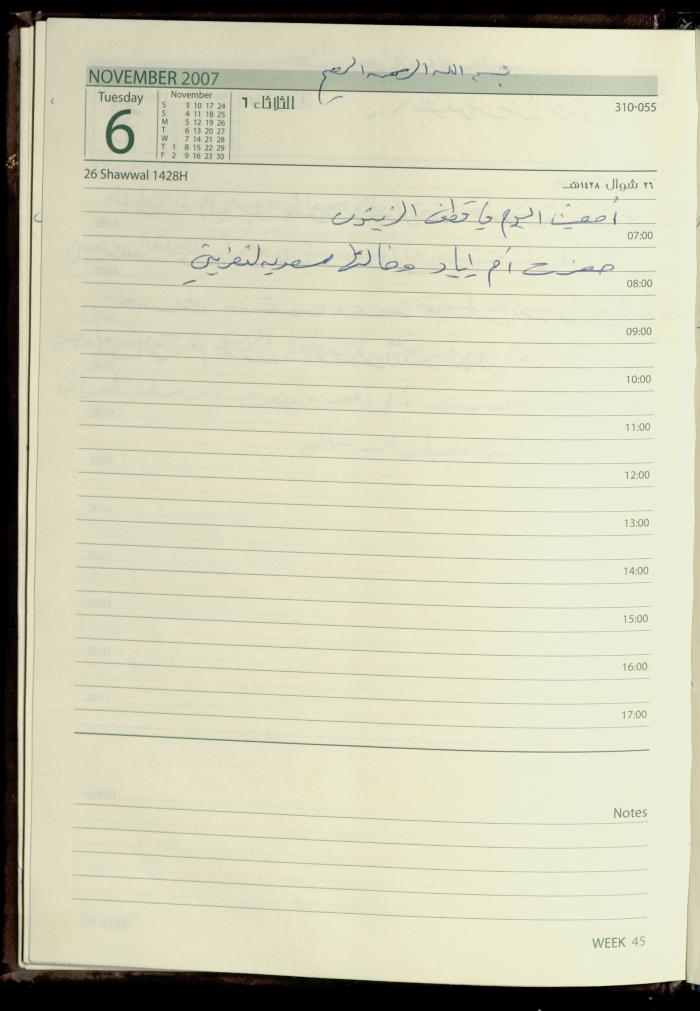 بسم الله الرحمن الرحيم
NOVEMBER 2007
Tuesday
6
November
S 3 10 17 24
S 4 11 18 25
M 5 12 19 26
T 6 13 20 27
W 7 14 21 28
T 1 8 15 22 29
F 2 9 16 23 30
الثلاثاء ٦
310-055
26 Shawwal 1428H
٢٦ شوال ١٤٢٨هـ
أمضيت اليوم في قطف الزيتون
07:00
حضرت أم اياد وخالتها سعديه لتعزيتي
08:00
09:00
10:00
11:00
12:00
13:00
14:00
15:00
16:00
17:00
Notes
WEEK 45